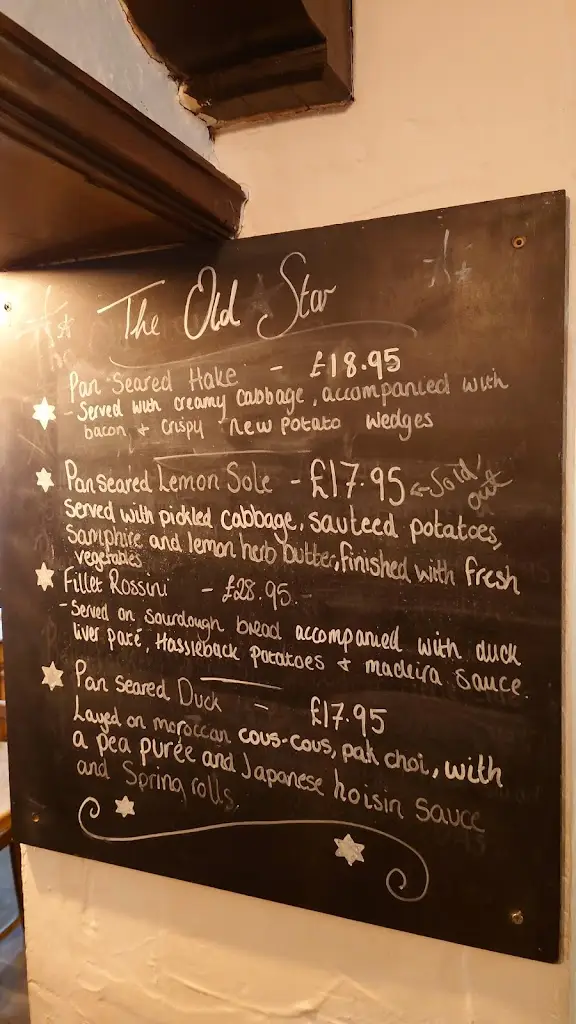 The Old Star
Pan Seared Hake - £18.95
- Served with creamy cabbage, accompanied with
bacon & crispy new potato wedges
Pan seared Lemon Sole - £17.95 ← Sold out
Served with pickled cabbage, sauteed potatoes,
samphire and lemon herb butter, finished with fresh
vegetables
Fillet Rossini - £28.95.-
- Served on sourdough bread accompanied with duck
liver paté, Hassleback potatoes & madeira sauce.
Pan seared Duck - £17.95
Layed on moroccan cous-cous, pak choi, with
a pea purée and Japanese hoisin sauce
and Spring rolls.